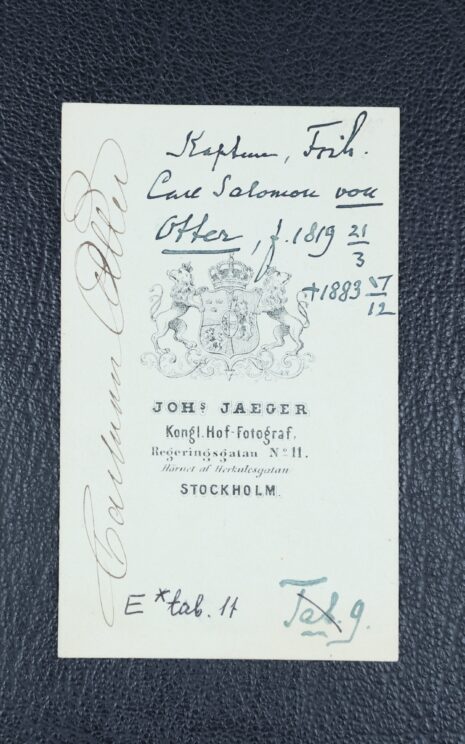 Kapten, Frih.
Carl Salomon von
Otter, f. 1819 21/3
+1883 /12
JOHS JAEGER
Kongl. Hof-Fotograf.
Regeringsgatan No 11.
Hörnet af Herkulesgatan
STOCKHOLM.
E * tab. 11
Tab. 9.
Otter